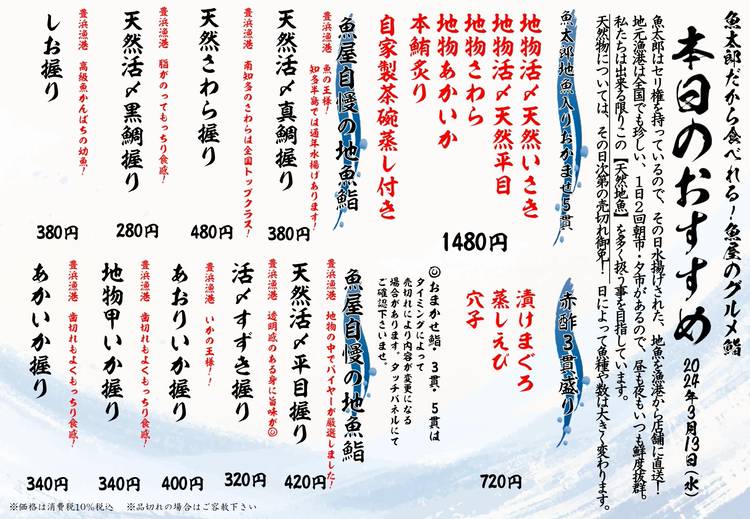 魚太郎だから食べれる！魚屋のグルメ鮨
本日のおすすめ
2024年3月13日（水）
魚太郎はセリ権を持っているので、その日水揚げされた、地魚を漁港から店舗に直送！
地元漁港は全国でも珍しい、1日2回朝市・夕市があるので、昼も夜もいつも鮮度抜群。
私たちは出来る限りこの【天然地魚】を多く扱う事を目指しています。
天然物については、その日次第の売切れ御免！日によって魚種や数は大きく変わります。
魚太郎地魚入りおまかせ5貫
地物活〆天然いさき
地物活〆天然平目
地物さわら
地物あかいか
本鮪炙り
自家製茶碗蒸し付き
1480円
赤酢3貫盛り
漬けまぐろ
蒸しえび
穴子
720円
◎おまかせ鮨・3貫・5貫は
タイミングによって
売切れにより内容が変更になる
場合があります。タッチパネルにて
ご確認下さいませ。
魚屋自慢の地魚鮨
豊浜漁港 魚の王様！
知多半島では通年水揚げあります！
天然活〆真鯛握り
380円
豊浜漁港 南知多のさわらは全国トップクラス！
天然さわら握り
480円
豊浜漁港 脂がのってもっちり食感！
天然活〆黒鯛握り
280円
豊浜漁港 高級魚かんぱちの幼魚！
しお握り
380円
魚屋自慢の地魚鮨
豊浜漁港 地物の中でバイヤーが厳選しました！
天然活〆平目握り
420円
豊浜漁港 透明感のある身に旨味が◎
活〆すずき握り
320円
豊浜漁港 いかの王様！
あおりいか握り
400円
豊浜漁港 歯切れもよくもっちり食感！
地物甲いか握り
340円
豊浜漁港 歯切れもよくもっちり食感！
あかいか握り
340円
※価格は消費税10%税込 ※品切れの場合はご容赦下さい